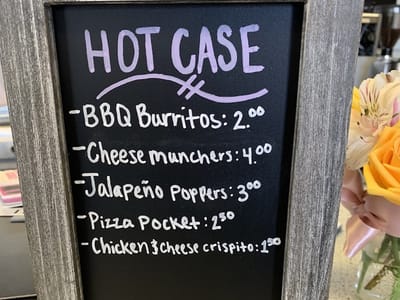 HOT CASE
-BBQ Burritos: 2.00
-Cheese munchers: 4.00
-Jalapeño Poppers: 3.00
-Pizza Pocket: 2.50
-Chicken & Cheese crispito: 1.50